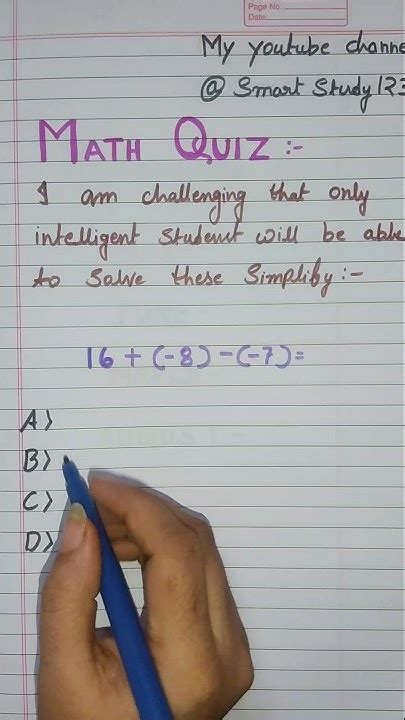 Page No.
Date
My youtube channe
@ Smart Study 123
MATH QUIZ :-
I am challenging that only
intelligent student will be able
to solve these Simpliby :-
16 + (-8) - (-7) =
A)
B)
C)
D)